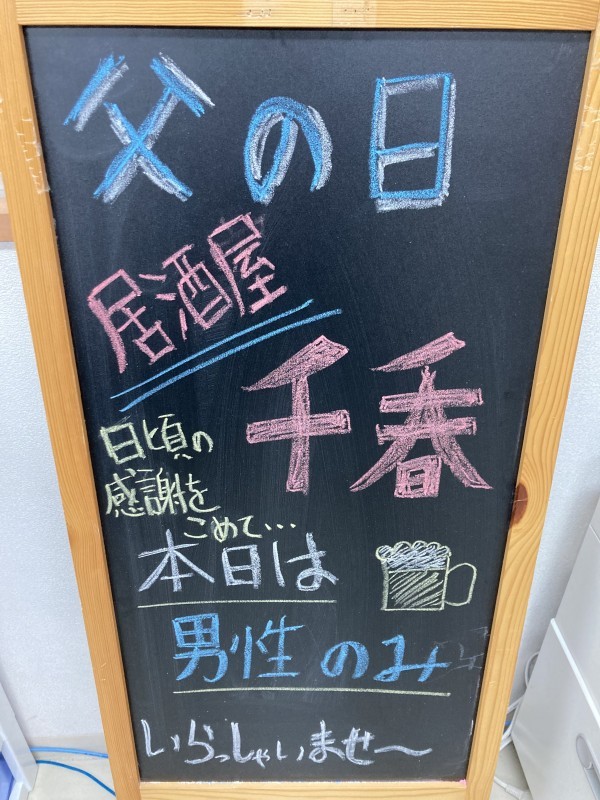 父の日
居酒屋
千春
日頃の
感謝を
こめて…
本日は
男性のみ
いらっしゃいませ～